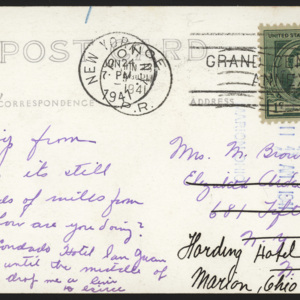 POST CARD
NEW YORK
PONCE
7-PM
1941
P.R.
GRAND
UNITED STATES
1¢
CORRESPONDENCE
ADDRESS
ip from
its still
ds of miles from
How are you doing?
Condado Hotel San Juan
until the middle of
drop me a line
Mrs. M. Brow
Elizabeth Ard
681 Fift
N.Y.
Harding Hotel
Marion, Ohio